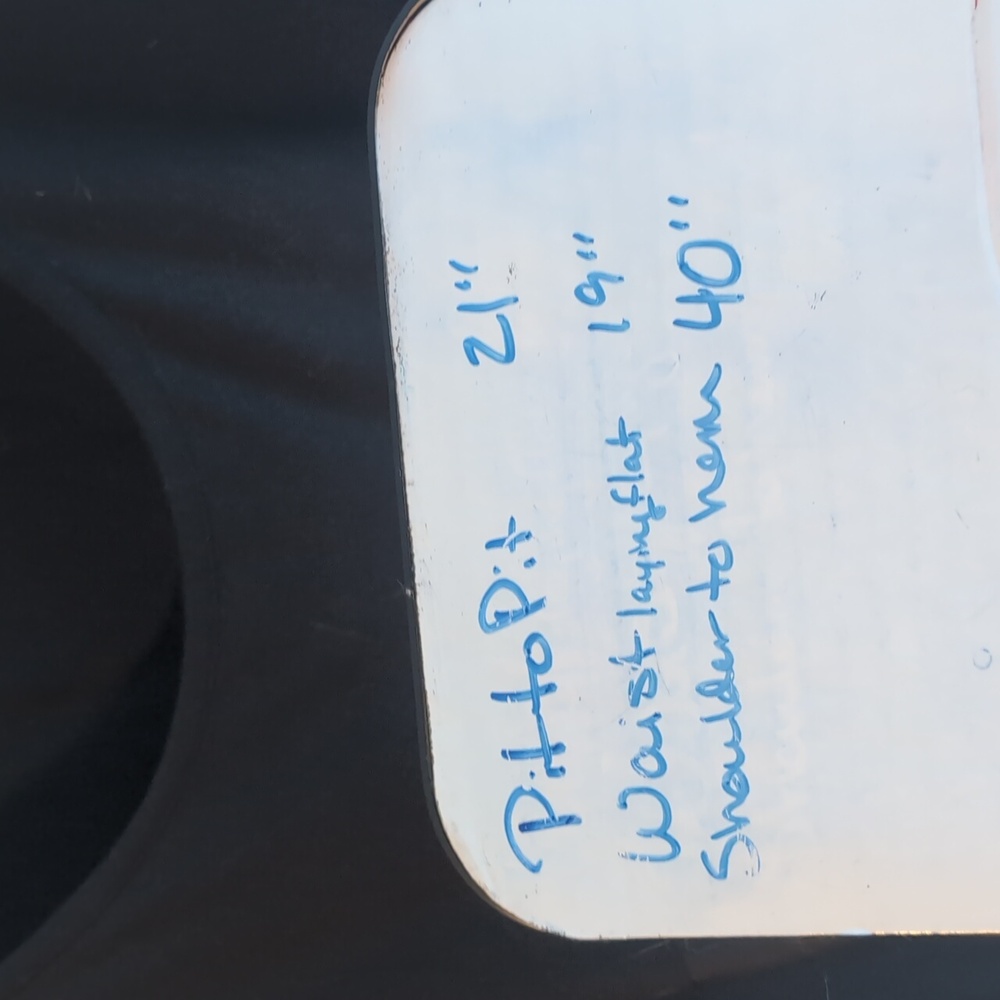 Pit to Pit 21"
Waist laying flat 19"
Shoulder to hem 40"